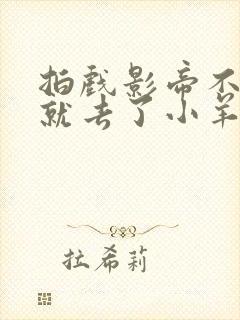 拍戏影帝不
就去了小羊
拉希莉